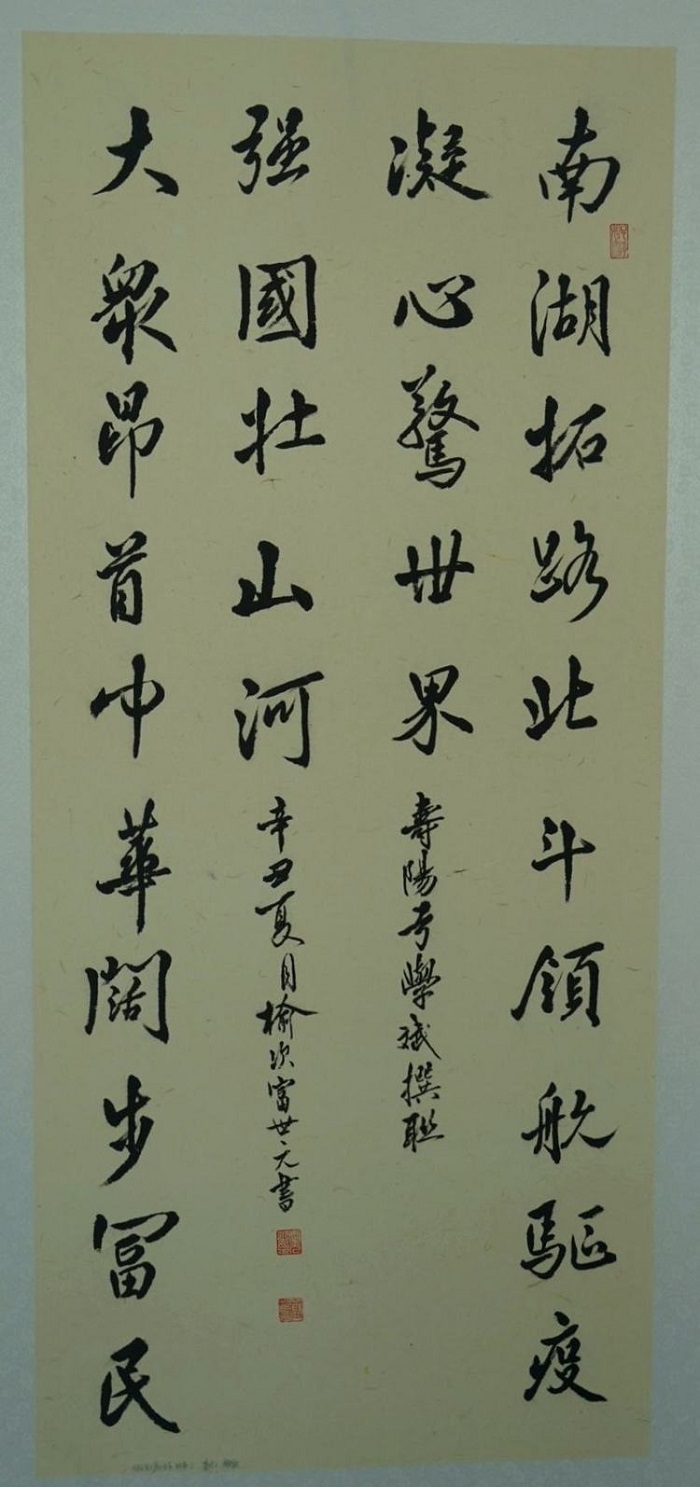 南湖拓路北斗領航驅疫
凝心驚世界
壽陽學斌撰聯
大眾昂首中華闊步冨民
强國壯山河
辛丑夏月榆次富世元書